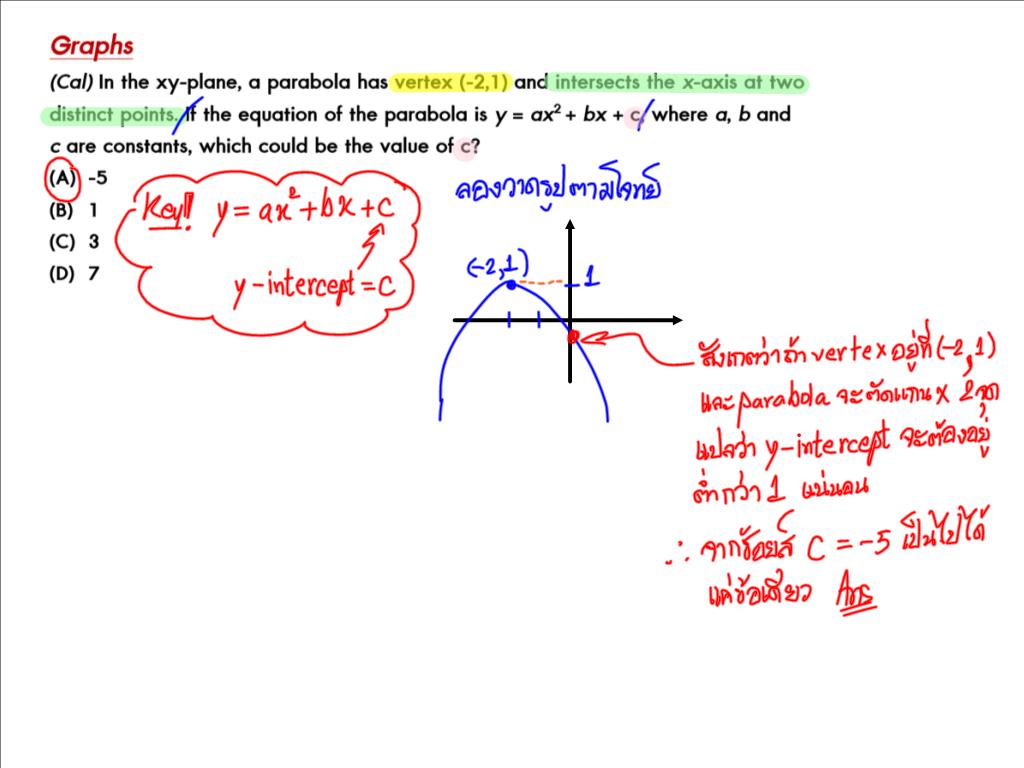 Graphs
(Cal) In the xy-plane, a parabola has vertex (-2,1) and intersects the x-axis at two
distinct points. If the equation of the parabola is y = ax² + bx + c, where a, b and
c are constants, which could be the value of c?
(A) -5
(B) 1
(C) 3
(D) 7
Key!! y = ax² + bx + c
y-intercept = c
ลองวาดรูปตามโจทย์
(-2,1)
1
สังเกตว่าถ้า vertex อยู่ที่ (-2,1)
และ parabola จะตัดแกน x 2 จุด
แปลว่า y-intercept จะต้องอยู่
ต่ำกว่า 1 แน่นอน
∴ จากช้อยส์ C = -5 เป็นไปได้
แค่ข้อเดียว Ans